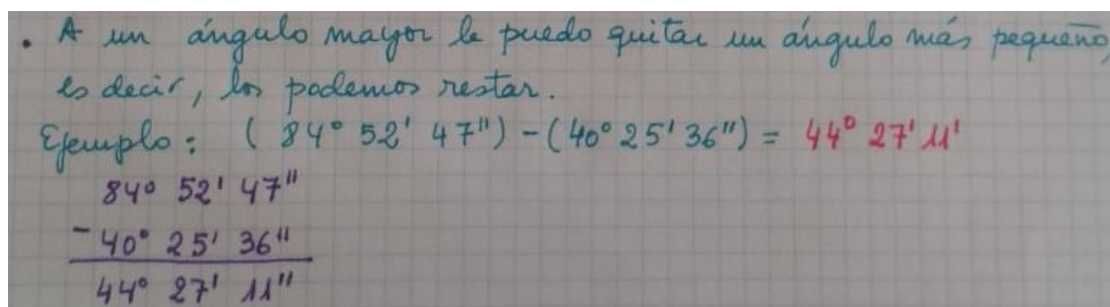 . A un ángulo mayor le puedo quitar un ángulo más pequeño,
es decir, los podemos restar.
Ejemplo: (84° 52' 47") - (40° 25' 36") = 44° 27' 11'
84° 52' 47"
- 40° 25' 36"
44° 27' 11"